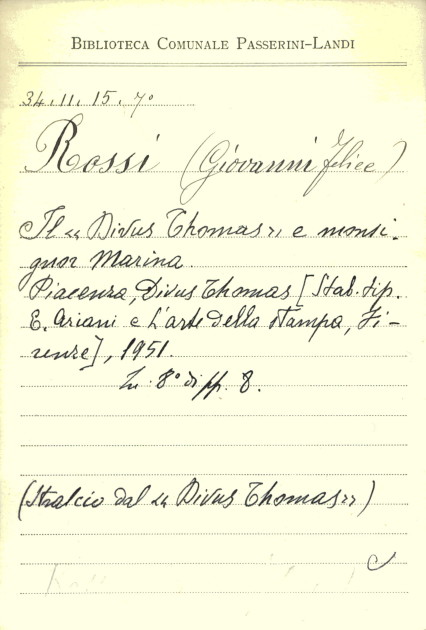 BIBLIOTECA COMUNALE PASSERINI-LANDI
34.11.15.7°
Rossi (Giovanni Felice)
Il « Divus Thomas » e monsi-
gnor Marina.
Piacenza, Divus Thomas [Stab. tip.
E. Ariani e L'arte della stampa, Fi-
renze], 1951.
In 8° di pp. 8.
(Stralcio dal « Divus Thomas »)